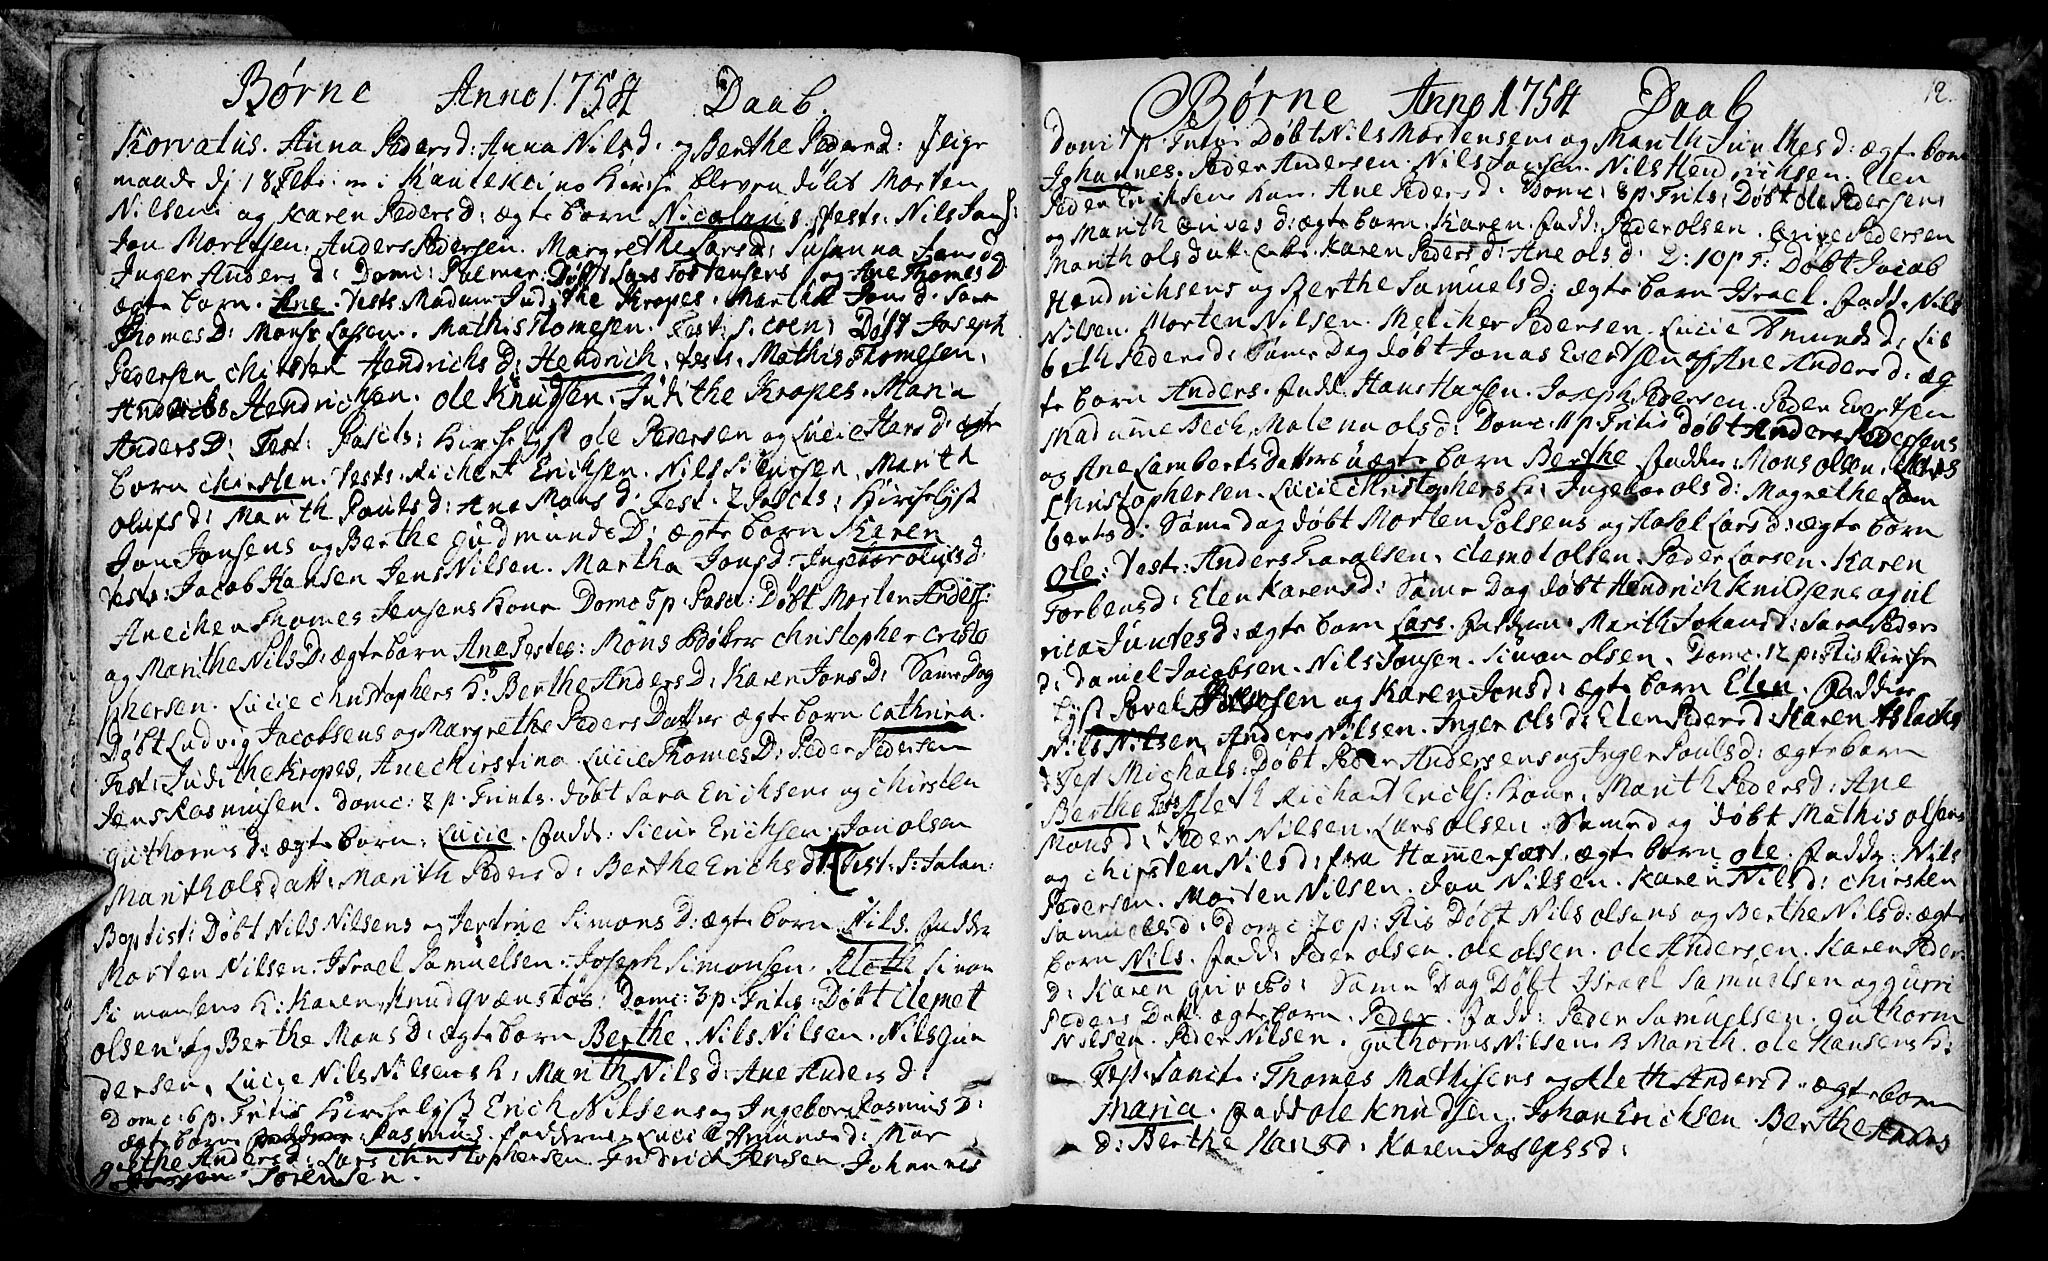 Børne Anno 1754 Daab.
Korvatus. Anna Peders d: Anna Nils d. og Berthe Peders d: Jlige
maade dj 18 Febr: er i Kautekeino Kirche bleven døbt Morten
Nilsens og Karen Peders d: ægte barn Nicolaus, Test: Nils Jons:
Jon Mortsen: Anders Pedersen. Margrethe Lars d: Susanna Jans d
Inger Anders d: Domc: Palmar: Døbt Lars Tostensens og Ane Thomes D
ægte barn. Ane. Test: Madam Judithe Kropes. Marthe Jons d. Sara
Thomes D: Monse Lassen. Mathis Thomesen. Fest: Døbt Joseph
Pedersen Chirsten Hendrichs D: Hendrich, tests. Mathis Thomesen,
Hendrichsen. Ole Knudsen. Judithe Kropes. Maria
Anders D: Fest: Pascts: Kircheløst Ole Pedersen og Lucie Hans d: ægte
born Chirsten. Tests. Richart Erichsen. Nils Sivursen. Marith
Olufs d: Marith Pouls d: Ane Mons d: Fest. 2 Pascts: Kircheløst
Jon Jonsens og Berthe Gudmunds D: ægte born Keren
Tests: Jacob Hansen Jens Nilsen. Martha Jons d. Ingebor Olufs d:
Anechen Thomes Jensens Kone Domc 5 p. Pasct: Døbt Morten Anders:
og Marithe Nils D: ægte barn Ane Testes: Mons Bøker Christopher Cristo
phersen. Lucie Christophers K: Berthe Anders D: Karen Jons D: Same Dag
Døbt Ludvig Jacobsens og Margrethe Peders Datter ægte born Cathrina.
Test: Judithe Kropes, Ane Chirstina. Lucie Thomes D: Peder Pedersen
Jens Rasmusen. Domc: 2 p. Trints. døbt Sara Erichsens og Chirsten
Guthorms d: ægte barn: Lucie. Fadd: Sivur Erichsen. Jon Olsen
Marith Ols datt: Marith Peders d: Berthe Erichs d: Fest: S: Johan:
Baptist: Døbt Nils Nilsens og Jertrue Simons D: ægte born Nils. Fadder
Morten Nilsen. Israel Samuelsen. Joseph Simonsen. Aleth Simon
Simonsens K: Karen Knud Qvænstøs: Domc: 3 p: Tritis: Døbt Clemet
Olsen og Berthe Mons d: ægte born Berthe, Nils Nilsen. Nils Gun
dersen, Lucie Nils Nilsens K: Marith Nils d: Ane Anders d:
Domc: 6 p: Tritis Kircheløst Erich Nilsens og Ingebor Rasmus D:
ægte born Rasmus. Fadderne Lucie Amunds d: Mar
grethe Anders d: Lars Christophersen. Fridrich Jensen Johannes
Sørensen.
12.
Børne Anno 1754 Daab
Dom: 7 p. Trits: Døbt Nils Mortensens og Marith Junthes d: ægte born
Johannes. Peder Andersen. Nils Jonsen. Nils Hendrichsen. Elen
Peder Erichsens Kone. Ane Peders d: Domc: 8 p. Trits: Døbt Ole Pedersens
og Marith d: ægte barn. Karen. Fadd: Peder Olsen. Pedersen
Marith Ols datt. Karen Peders d: Ane Ols d: D: 10 p T: Døbt Jacob
Hendrichsens og Berthe Samuels d: ægte barn Israel. Fadd. Nils
Nilsen. Morten Nilsen. Melcher Pedersen. Lucie Amunds d: Lis
beth Peders d: Same Dag døbt Jonas Evertsen og Ane Anders d: æg
te born Anders. Fadd. Hans Hansen. Joseph Pedersen. Peder Evertsen
Madamme Bech. Malena Ols d: Domc. 11 p Tritis døbt Anders Pedersens
og Ane Lamberts Datters uægte born Berthe Fadder: Mons Olsen.
Christophersen. Lucie Christophers K: Ingebor Ols d: Magrethe Lam
berts d: Same dag døbt Morten Polsens og Lars d: ægte born
Ole: Test: Anders Haralsen. Clemet Olsen. Peder Larsen. Karen
Torbens d: Elen Karens d: Same Dag døbt Hendrich Knudsens og Ul
rica Juntes d: ægte born Lars. Marith Johans d: Sara Peders
d: Daniel Jacobsen. Nils Jonsen. Simon Olsen. Domc: 12 p: tis Kirche
løst Povel og Karen Jons d: ægte born Elen. Fadder
Nils Nilsen Anders Nilsen. Inger Ols d: Elen Peders d: Karen Aslachs
d: Fest Michals: Døbt Peder Andersens og Inger Pouls d: ægte born
Berthe Test: Aleth Richart Erichs: Kone, Marith Peders d: Ane
Mons d: Peder Nilsen. Lars Olsen. Same dag døbt Mathis Olsens
og Chirsten Nils d: fra Hamerfæst. ægte born Ole. Fadde: Nils
Pedersen. Morten Nilsen. Jon Nilsen. Karen Nils d: Chirsten
Samuels d: Domc: 20 p: Døbt Nils Olsens og Berthe Nils d: ægte
born Nils. Fadd: Peder Olsen. Ole Olsen. Ole Andersen. Karen Peder
d: Karen d: Same Dag Døbt Israel Samuelsen og Gurri
Peders Datt: ægte born. Peder. Fadd: Peder Samuelsen. Guthorm
Nilsen. Peder Nilsen. Guthorms Nilsens K Marith. Ole Hansens K:
Fest: Sanct: Thomes Mathisens og Aleth Anders d. ægte born
Maria. Fadd Ole Knudsen. Johan Erichsen. Berthe Anders
d: Berthe Hans d: Karen Joseps d: